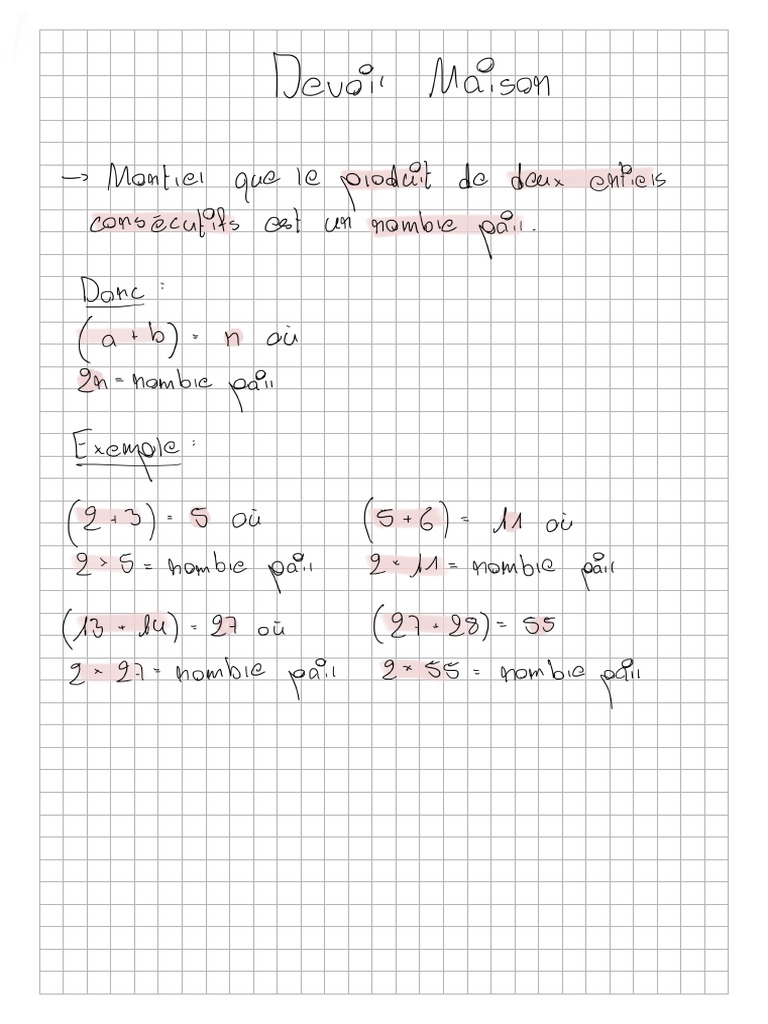 Devoir Maison
→ Montrer que le produit de deux entiers
consécutifs est un nombre pair.
Donc :
(a + b) = n où
2n = nombre pair
Exemple :
(2 + 3) = 5 où
2 × 5 = nombre pair
(5 + 6) = 11 où
2 × 11 = nombre pair
(13 + 14) = 27 où
2 × 27 = nombre pair
(27 + 28) = 55
2 × 55 = nombre pair